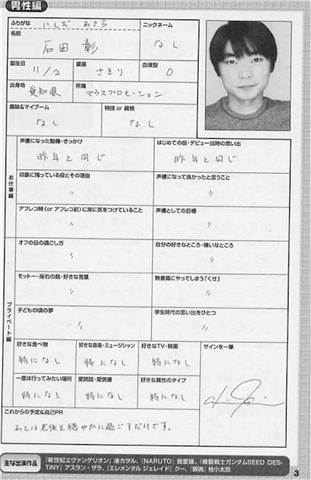 男性編
ふりがな いしだ あきら
ニックネーム
名前
石田 彰
なし
誕生日 11/2
星座 さそり
血液型 O
出身地 愛知県
所属 マウスプロモーション
趣味&マイブーム
なし
特技 or 資格
なし
お仕事編
声優になった動機・きっかけ
昨年と同じ
はじめての役・デビュー当時の思い出
昨年と同じ
印象に残っている役とその理由
〃
声優になって良かったと思うこと
〃
アフレコ時(or アフレコ前)に常に気をつけていること
〃
声優としての目標
〃
プライベート編
オフの日の過ごし方
〃
自分の好きなところ・嫌いなところ
〃
モットー・座右の銘・好きな言葉
〃
無意識にやってしまう「くせ」
〃
子どもの頃の夢
〃
学生時代の思い出をひとつ
〃
好きな食べ物
特になし
好きな音楽・ミュージシャン
特になし
好きなTV・映画
特になし
サインを一筆
一度は行ってみたい場所
特になし
愛読誌・愛読書
特になし
好きな異性のタイプ
特になし
これからの予定&自己PR
あとは老後を穏やかに過ごすだけです。
主な出演作品
『新世紀エヴァンゲリオン』渚カヲル、『NARUTO』我愛羅、『機動戦士ガンダムSEED DES-
TINY』アスラン・ザラ、『エレメンタル ジェレイド』クー、『銀魂』桂小太郎
3